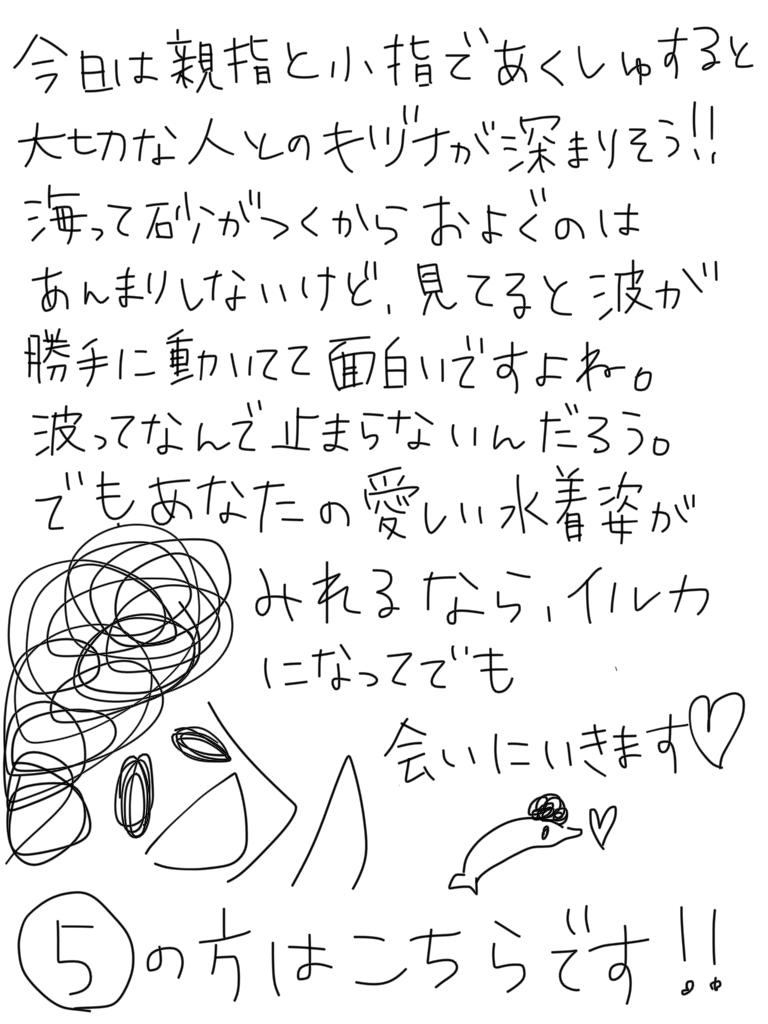 今日は親指と小指であくしゅすると
大切な人とのキヅナが深まりそう!!
海って砂がつくからおよぐのは
あんまりしないけど、見てると波が
勝手に動いてて面白いですよね。
波ってなんで止まらないんだろう。
でもあなたの愛しい水着姿が
みれるなら、イルカ
になってでも
会いにいきます♡
⑤の方はこちらです!!